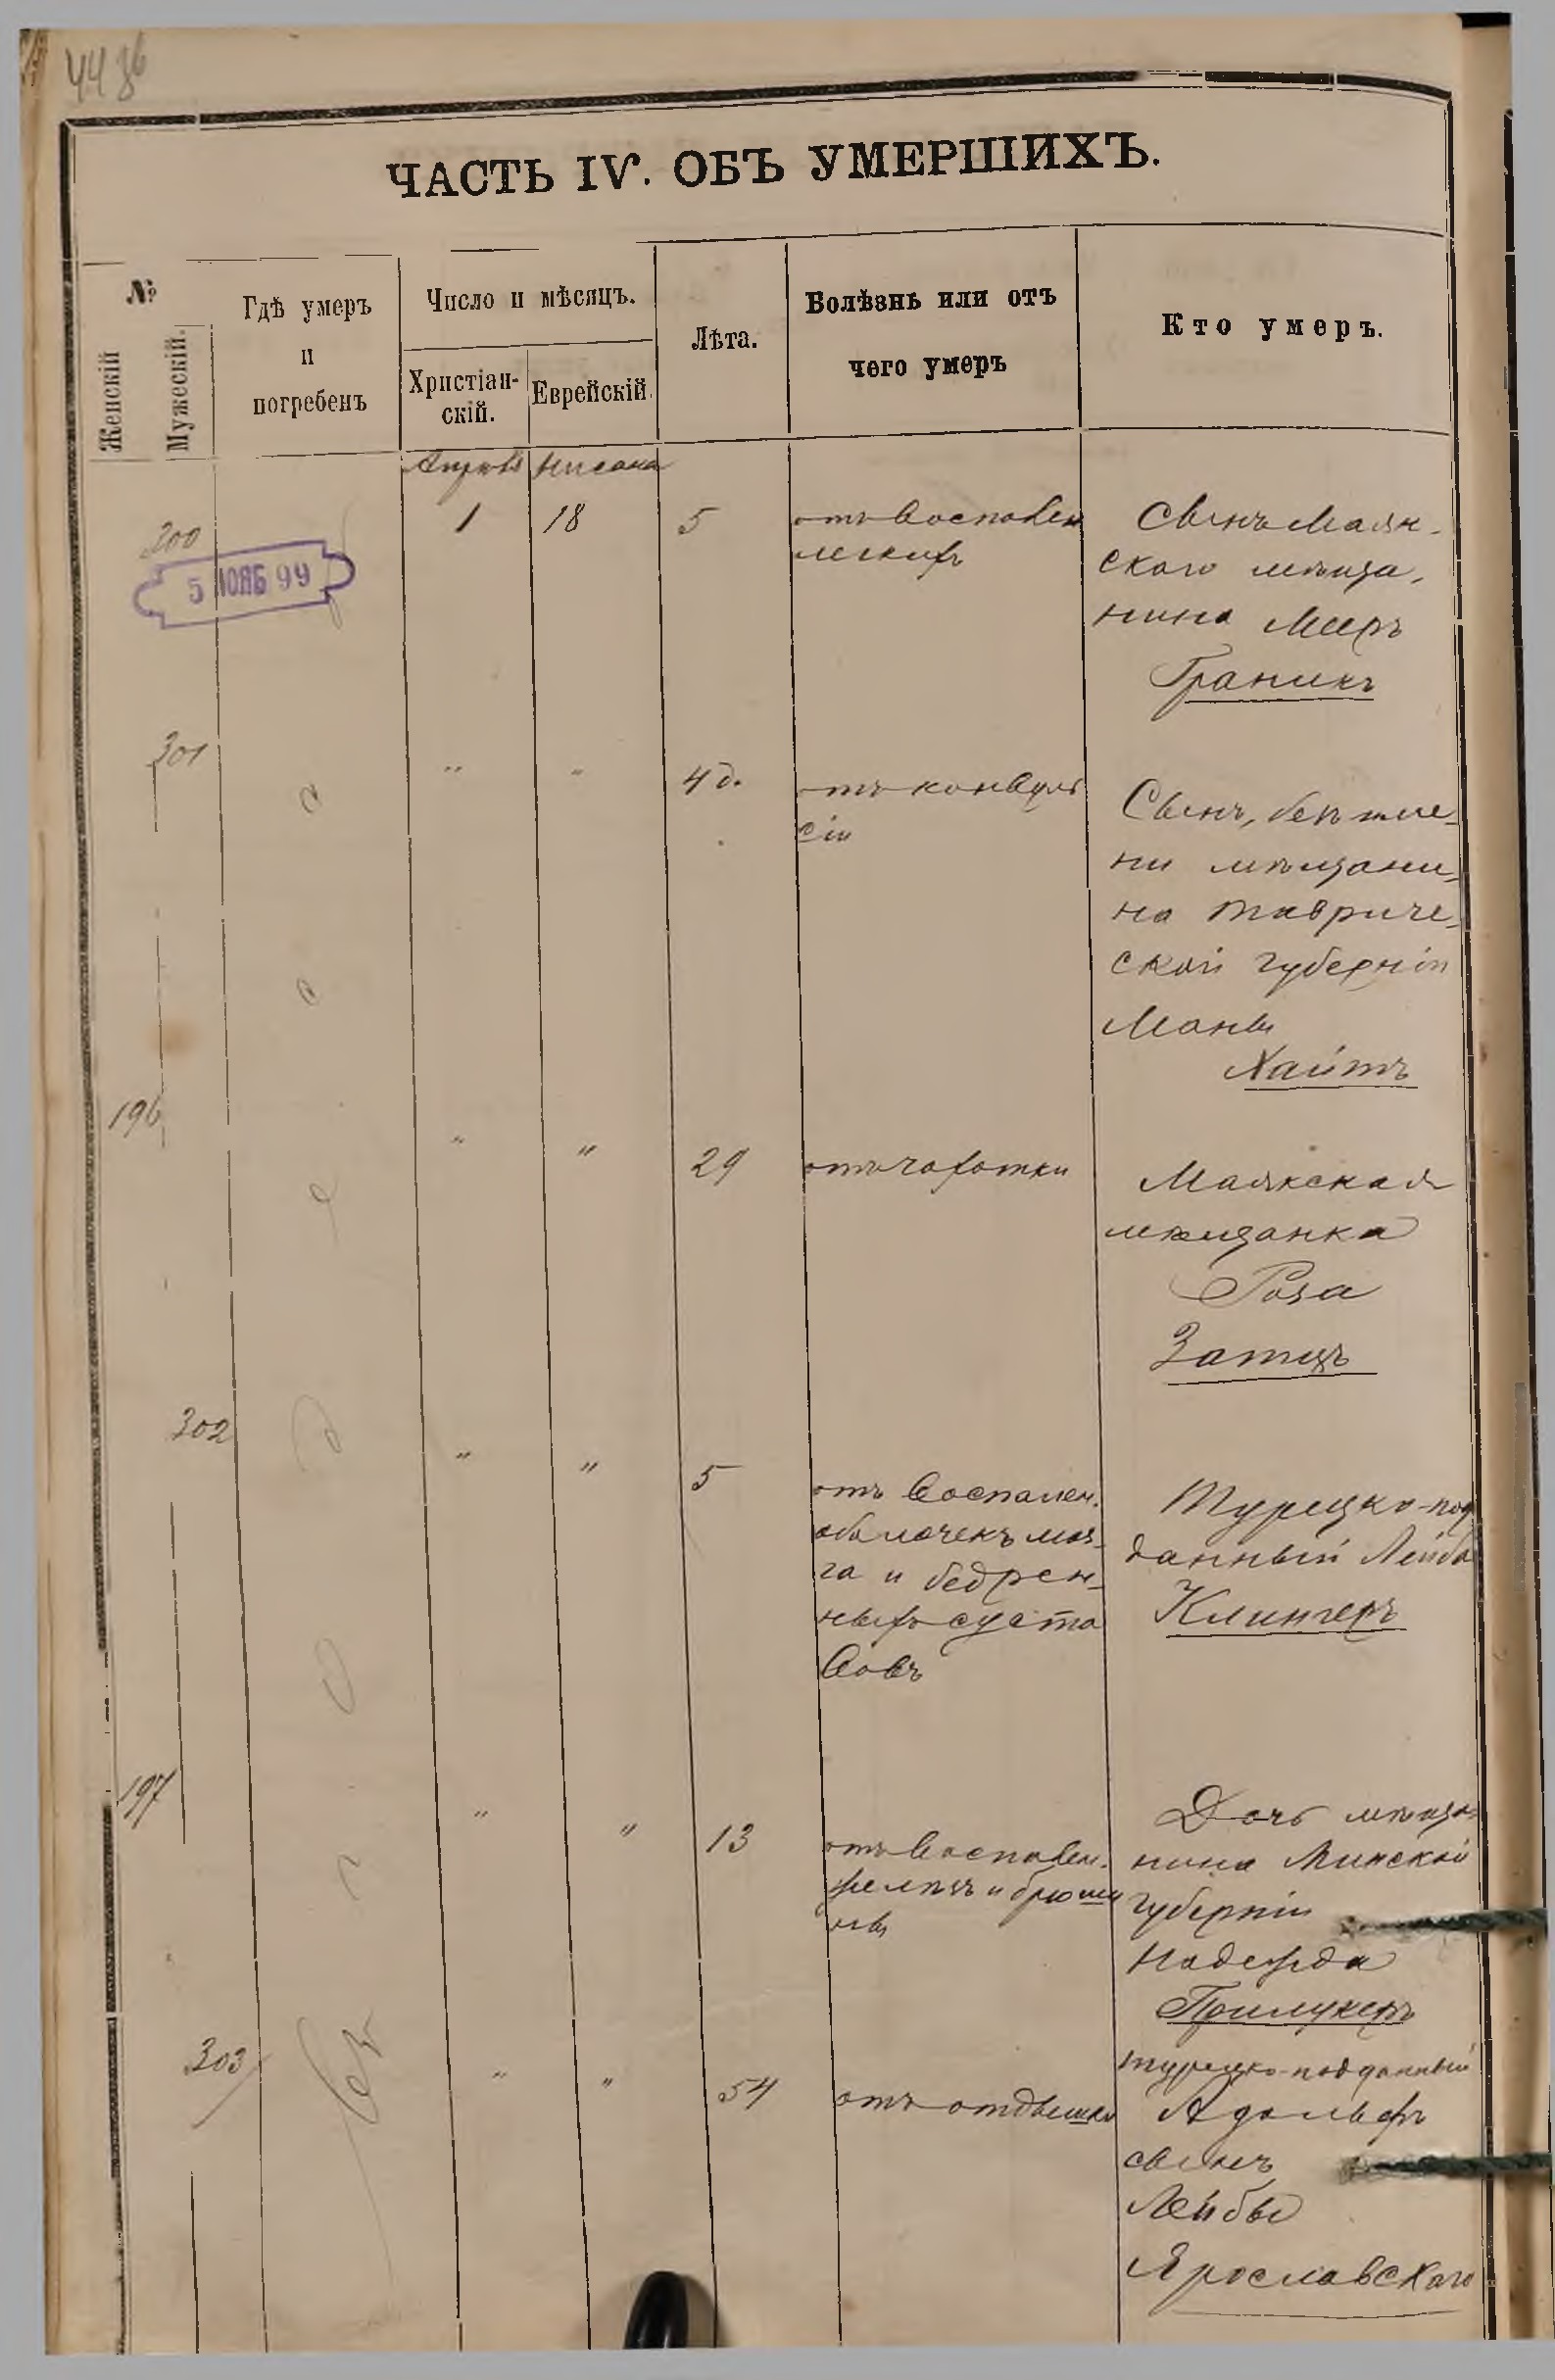 ЧАСТЬ IV. ОБЪ УМЕРШИХЪ.
№
Женскій
Мужескій.
Гдѣ умеръ
и
погребенъ
Число и мѣсяцъ.
Христіан-
скій.
Еврейскій.
Лѣта.
Болѣзнь или отъ
чего умеръ
Кто умеръ.
Апрѣль
Нисана
300
5 НОЯБ 99
1
18
5
отъ воспален
легкихъ
Сынъ Маяк-
скаго мѣща-
нина Мееръ
Граникъ
301
"
"
4 д.
отъ конвуль
сіи
Сынъ, безъ име-
ни мѣщани-
на Тавриче-
ской губерніи
Моны
Хаитъ
196
"
"
29
отъ чахотки
Маякская
мѣщанка
Роза
Затцъ
302
"
"
5
отъ воспален.
оболочекъ моз-
га и бедрен-
ныхъ суста
вовъ
Турецко-под
данный Лейба
Клингеръ
197
"
"
13
отъ воспален.
и брюши
ны
Дочь мѣща-
нина Минской
губерніи
Надежда
Прилукеръ
303
"
"
54
отъ отдышки
турецко-подданный
Адольфъ
сынъ
Лейбы
Ярославскаго